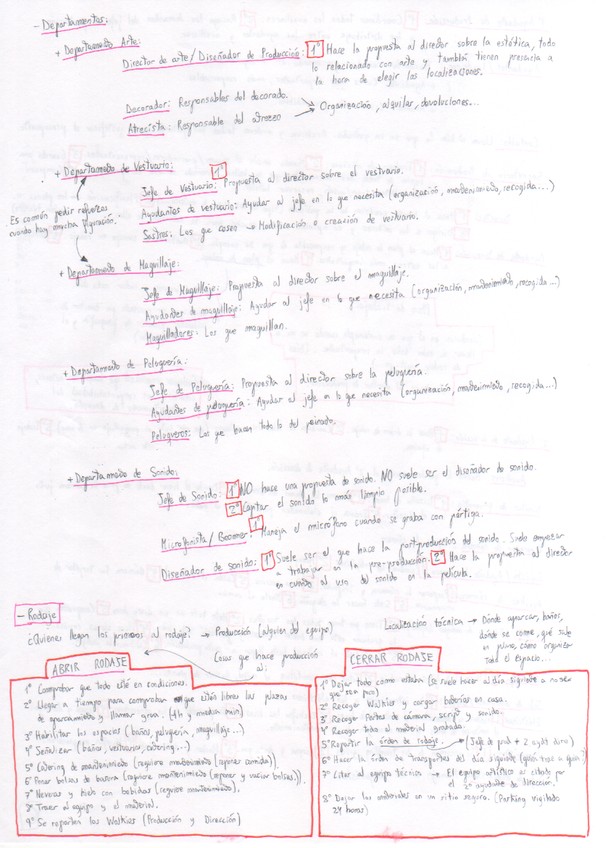 - Departamentos:
+ Departamento Arte:
Director de arte / Diseñador de Producción: 1º Hace la propuesta al director sobre la estética, todo
lo relacionado con arte y también tienen presencia a
la hora de elegir las localizaciones.
Decorador: Responsables del decorado.
Organización, alquilar, devoluciones...
Atrecista: Responsable del atrezzo
+ Departamento de Vestuario: 1º
Jefe de Vestuario: Propuesta al director sobre el vestuario.
Ayudantas de vestuario: Ayudar al jefe en lo que necesita (organización, mantenimiento, recogida...)
Es común pedir refuerzos
cuando hay mucha figuración.
Sastras: Los que cosen → Modificación o creación de vestuario.
+ Departamento de Maquillaje:
Jefe de Maquillaje: Propuesta al director sobre el maquillaje.
Ayudantes de maquillaje: Ayudar al jefe en lo que necesita (organización, mantenimiento, recogida...)
Maquilladores: Los que maquillan.
+ Departamento de Peluquería:
Jefe de Peluquería: Propuesta al director sobre la peluquería.
Ayudantes de peluquería: Ayudar al jefe en lo que necesita (organización, mantenimiento, recogida...)
Peluqueros: Los que hacen todo lo del peinado.
+ Departamento de Sonido:
Jefe de Sonido: 1º NO hace una propuesta de sonido. NO suele ser el diseñador de sonido.
2º Captar el sonido lo más limpio posible.
Microfonista / Boomer: 1º Maneja el micrófono cuando se graba con pértiga.
Diseñador de sonido: 1º Suele ser el que hace la postproducción del sonido. Suele empezar
a trabajar en la pre-producción. 2º Hace la propuesta al director
en cuanto al uso del sonido en la película.
- Rodaje
¿Quienes llegan los primeros al rodaje? → Producción (alguien del equipo)
Localización técnica → Dónde aparcar, baños,
dónde se come, qué sale
en plano, cómo organizar
todo el espacio...
Cosas que hace producción
al:
ABRIR RODAJE
1º Comprobar que todo esté en condiciones.
2º Llegar a tiempo para comprobar que estén libres las plazas
de aparcamientos y llamar grua. (4h y media min)
3º Habilitar los espacios (baños, peluquería, maquillaje...)
4º Señalizar (baños, vestuarios, catering...)
5º Catering de mantenimiento (requiere mantenimiento (reponer comida)).
6º Poner bolsas de basura (requiere mantenimiento (reponer y vaciar bolsas)).
7º Neveras y tich con bebidas (requiere mantenimiento).
8º Traer al equipo y el material.
9º Se reparten los Walkies (Producción y Dirección)
CERRAR RODAJE
1º Dejar todo como estaba (se suele hacer al día siguiente a no ser
que sea prio)
2º Recoger Walkies y cargar baterías en casa.
3º Recoger Partes de cámara, script y sonido.
4º Recoger todo el material grabado.
5º Repartir la órden de rodaje. → (Jefe de prod + 2 aydt direc)
6º Hacer la órden de transportes del día siguiente (quién trae a quién).
7º Citar al equipo técnico → El equipo artístico es citado por
el 2º ayudante de dirección.
8º Dejar los materiales en un sitio seguro. (Parking vigilado
24 horas)